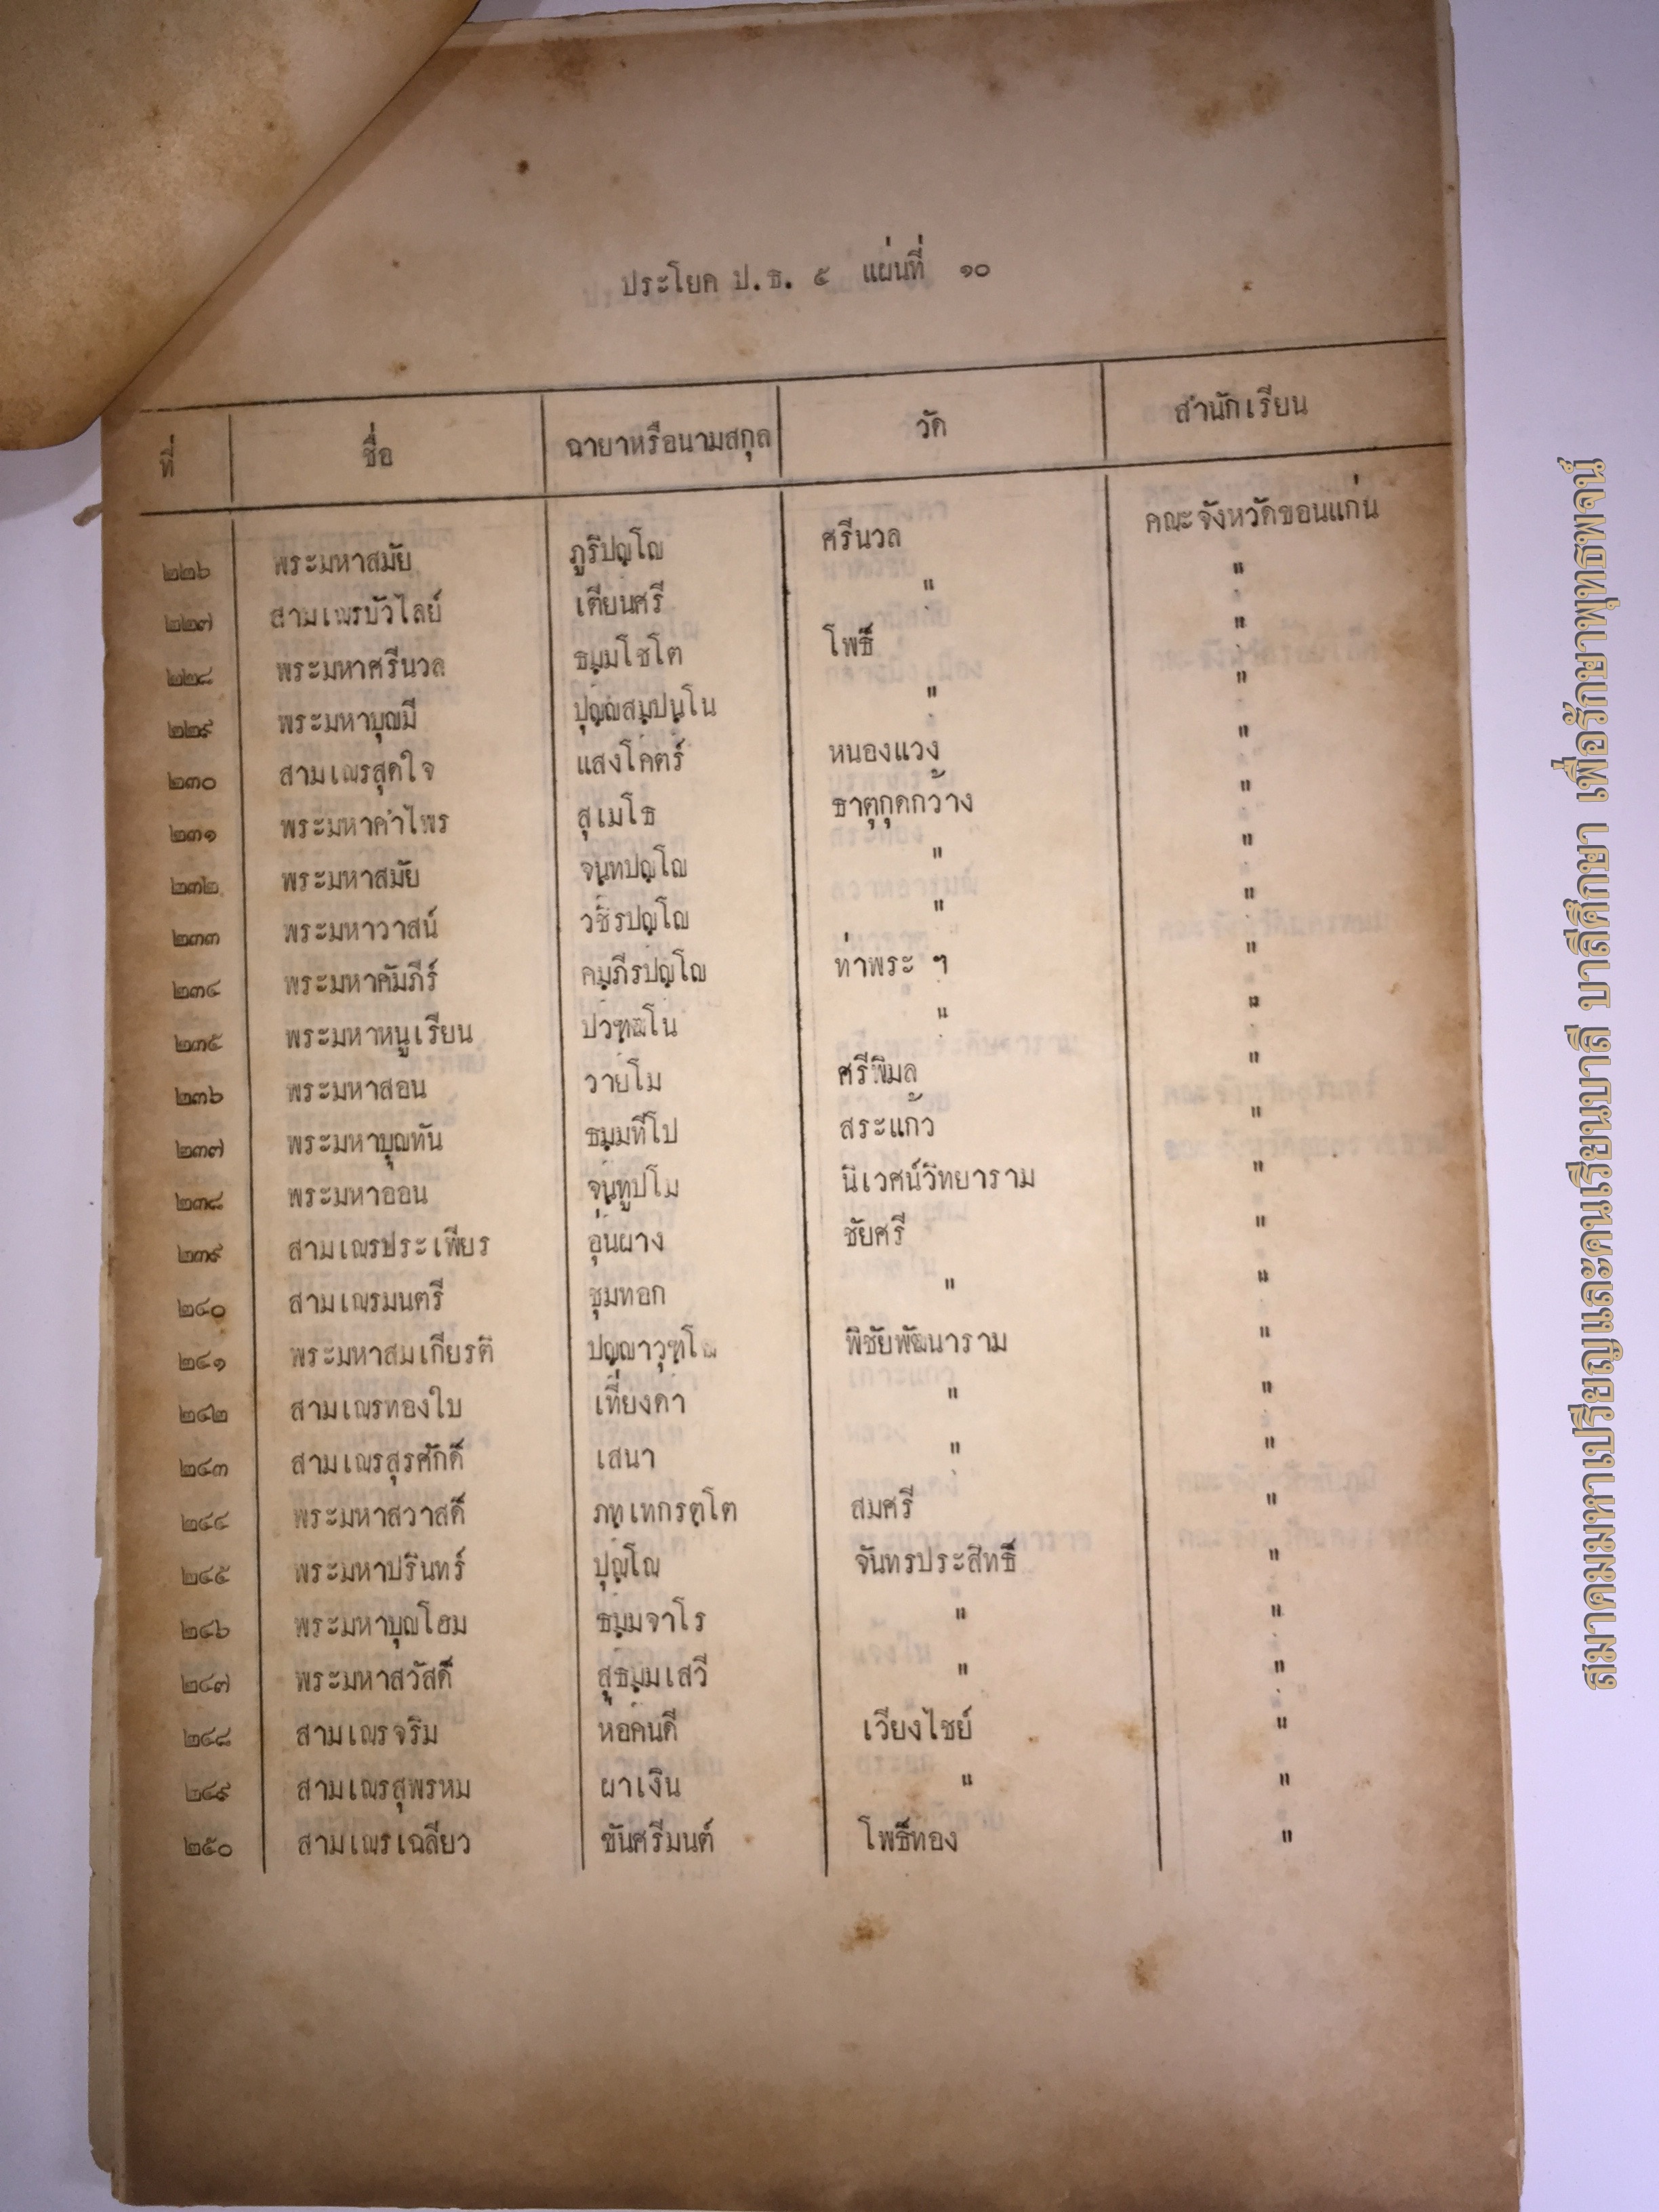 ประโยค ป.ธ. ๕ แผ่นที่ ๑๐
ที่ ชื่อ ฉายาหรือนามสกุล วัด สำนักเรียน
๒๒๖ พระมหาสมัย ภูริปญฺโญ ศรีนวล คณะจังหวัดขอนแก่น
๒๒๗ สามเณรบัวไลย์ เตียนศรี " "
๒๒๘ พระมหาศรีนวล ธมฺมโชโต โพธิ์ "
๒๒๙ พระมหาบุญมี ปุญฺญสมฺปนฺโน " "
๒๓๐ สามเณรสุดใจ แสงโคตร์ หนองแวง "
๒๓๑ พระมหาคำไพร สุเมโธ ธาตุกุดกว้าง "
๒๓๒ พระมหาสมัย จนฺทปญฺโญ " "
๒๓๓ พระมหาวาสน์ วชิรปญฺโญ " "
๒๓๔ พระมหาคัมภีร์ คมฺภีรปญฺโญ ท่าพระ ฯ "
๒๓๕ พระมหาหนูเรียน ปวฑฺฒโน " "
๒๓๖ พระมหาสอน วายโม ศรีพิมล "
๒๓๗ พระมหาบุญทัน ธมฺมทีโป สระแก้ว "
๒๓๘ พระมหาออน จนฺทูปโม นิเวศน์วิทยาราม "
๒๓๙ สามเณรประเพียร อุ่นผาง ชัยศรี "
๒๔๐ สามเณรมนตรี ชุมทอก " "
๒๔๑ พระมหาสมเกียรติ ปญฺญาวุฑฺโฒ พิชัยพัฒนาราม "
๒๔๒ สามเณรทองใบ เที่ยงคำ " "
๒๔๓ สามเณรสุรศักดิ์ เสนา " "
๒๔๔ พระมหาสวาสดิ์ ภทฺเทกรตฺโต สมศรี "
๒๔๕ พระมหาปรินทร์ ปุญฺโญ จันทรประสิทธิ์ "
๒๔๖ พระมหาบุญโฮม ธมฺมจาโร " "
๒๔๗ พระมหาสวัสดิ์ สุธมฺมเสวี " "
๒๔๘ สามเณรจริม หอคนดี เวียงไชย์ "
๒๔๙ สามเณรสุพรหม ผาเงิน " "
๒๕๐ สามเณรเฉลียว ขันศรีมนต์ โพธิ์ทอง "
สมาคมมหาเปรียญและคนเรียนบาลี บาลีศึกษา เพื่อรักษาพุทธพจน์